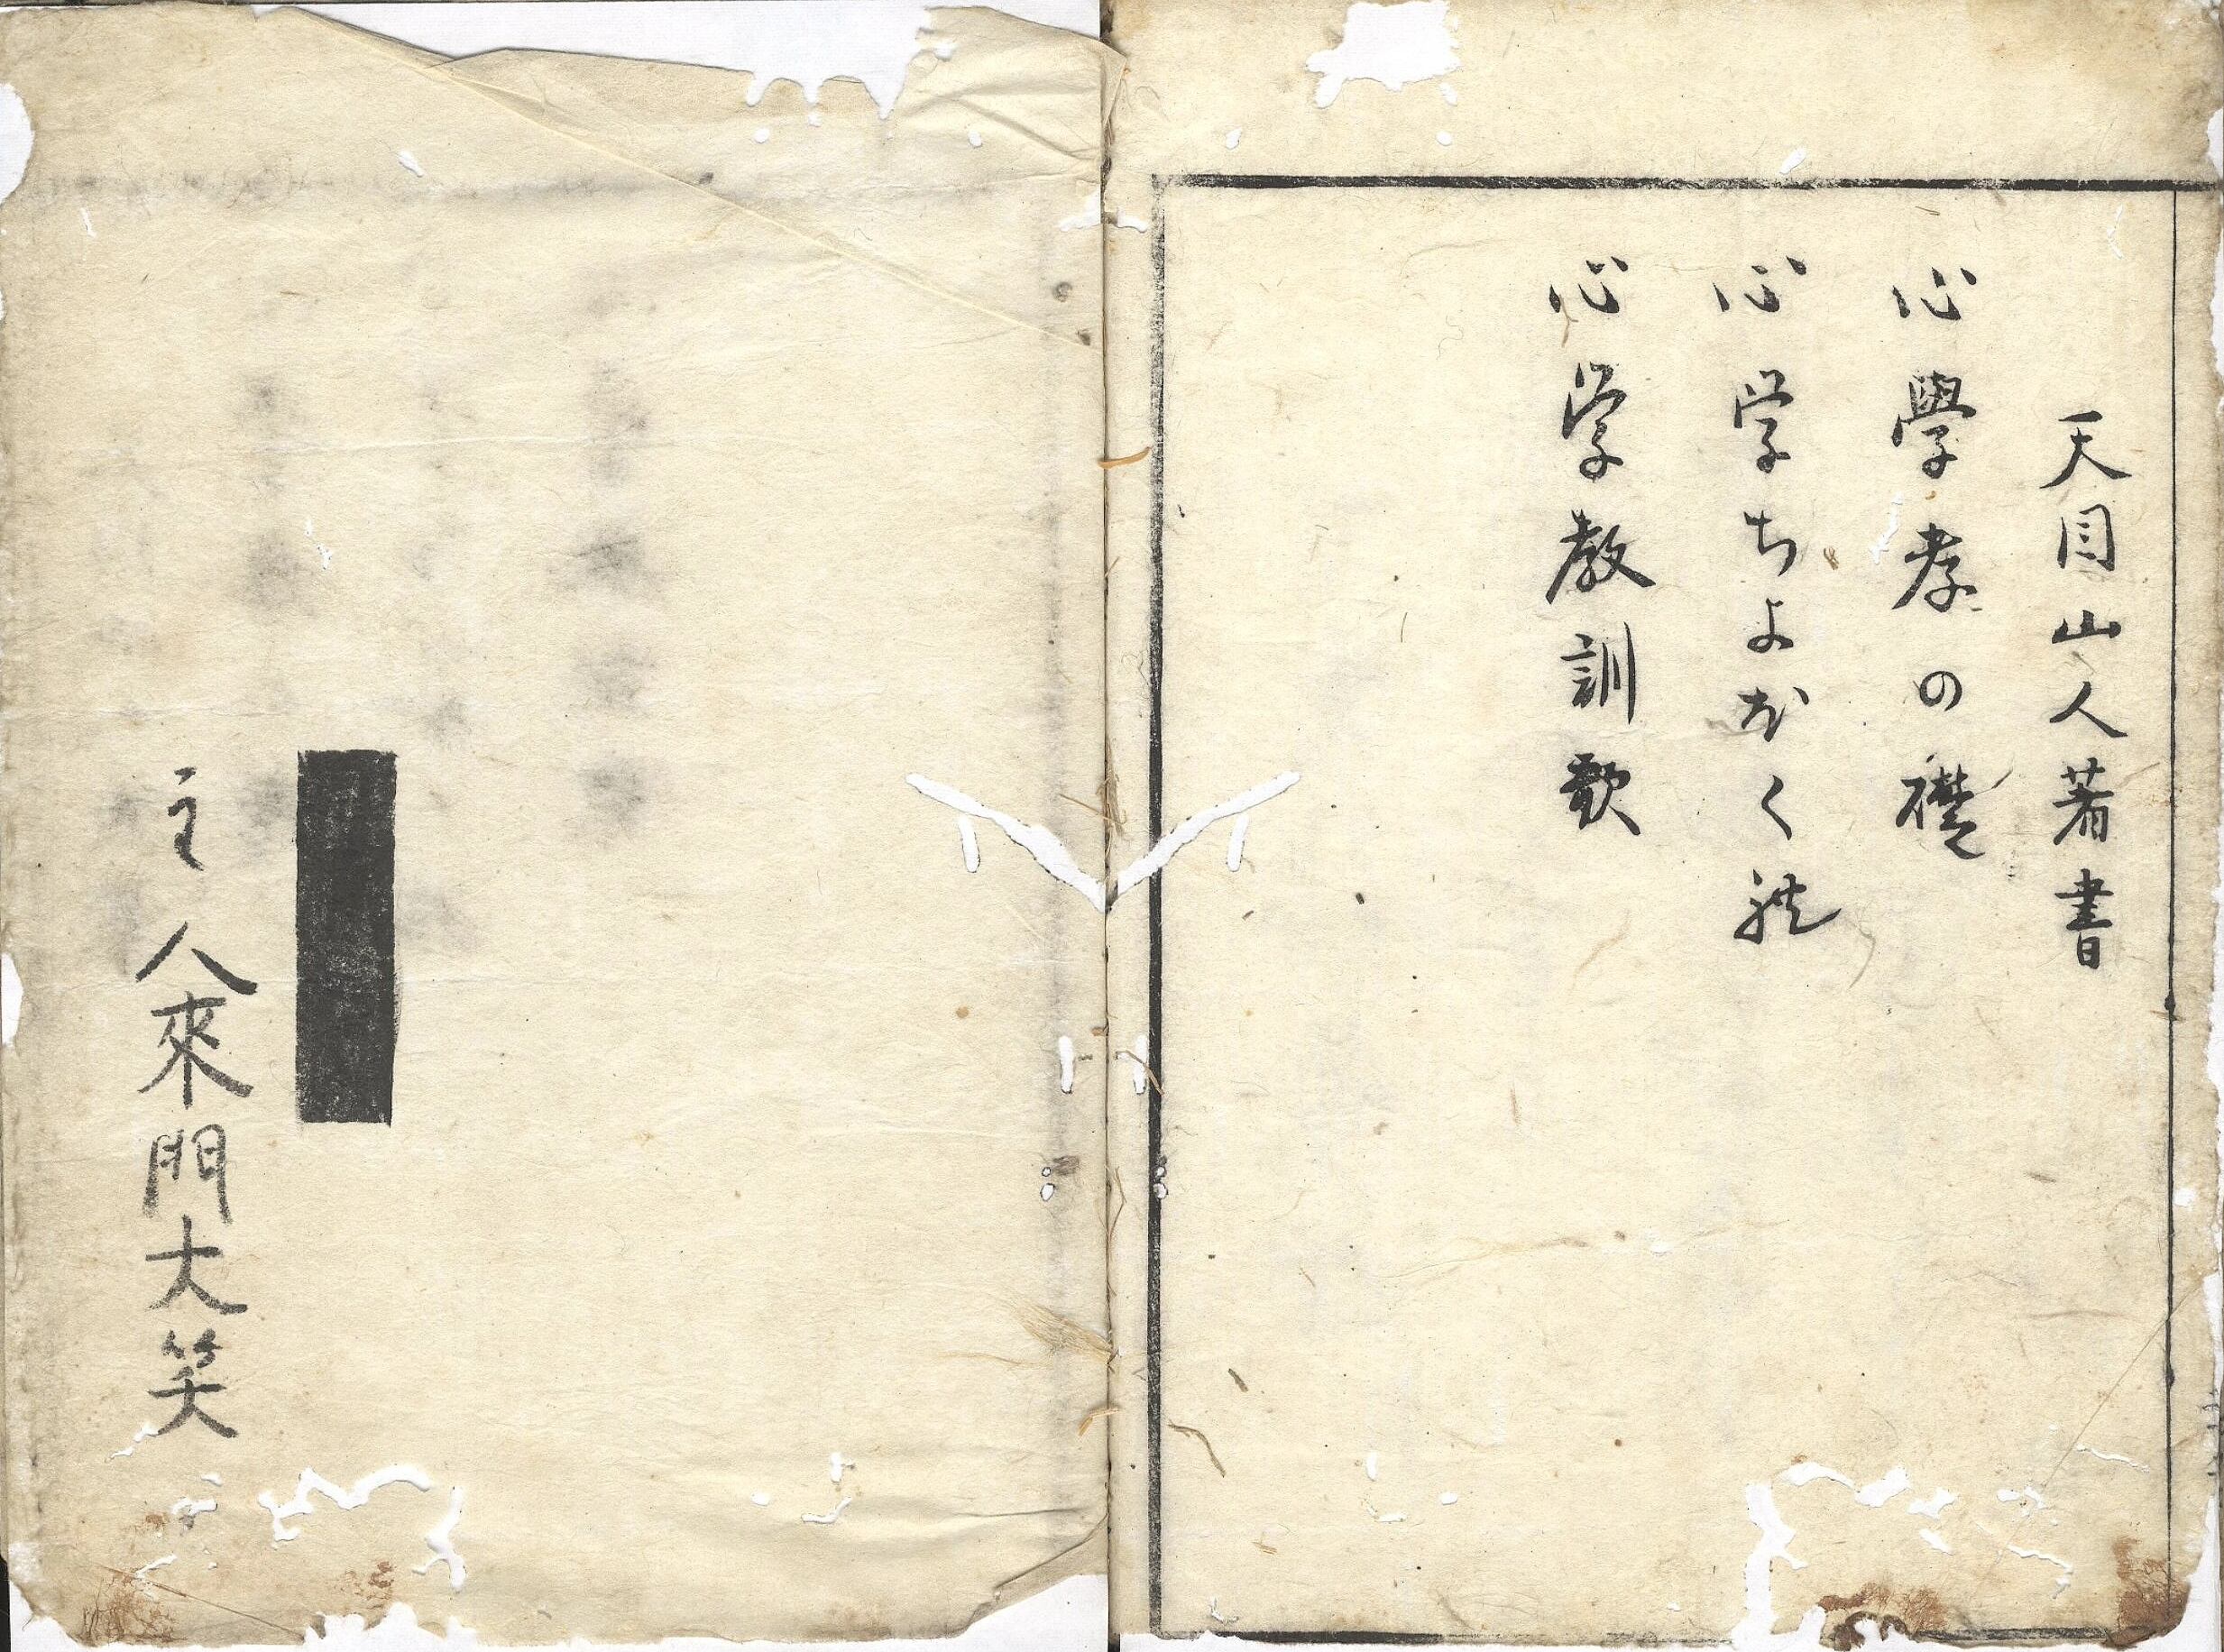 天目山人著書
心學孝の礎
心学ちよぼくれ
心学教訓歌
主人來門大笑